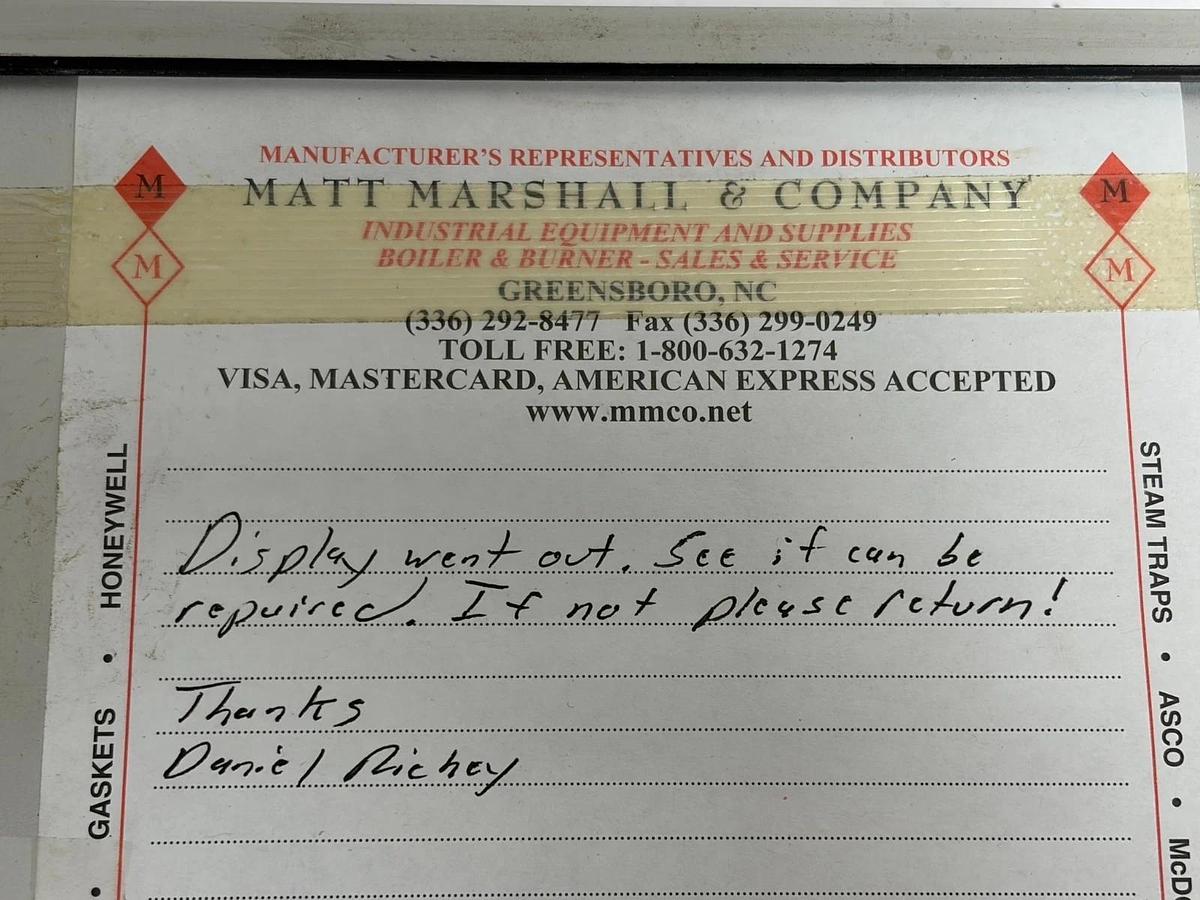 MANUFACTURER'S REPRESENTATIVES AND DISTRIBUTORS
M M
MATT MARSHALL & COMPANY
INDUSTRIAL EQUIPMENT AND SUPPLIES
BOILER & BURNER - SALES & SERVICE
M M
GREENSBORO, NC
(336) 292-8477 Fax (336) 299-0249
TOLL FREE: 1-800-632-1274
VISA, MASTERCARD, AMERICAN EXPRESS ACCEPTED
www.mmco.net
Display went out. See if can be
repaired. If not please return!
Thanks
Daniel Richey
• GASKETS • HONEYWELL
STEAM TRAPS • ASCO •